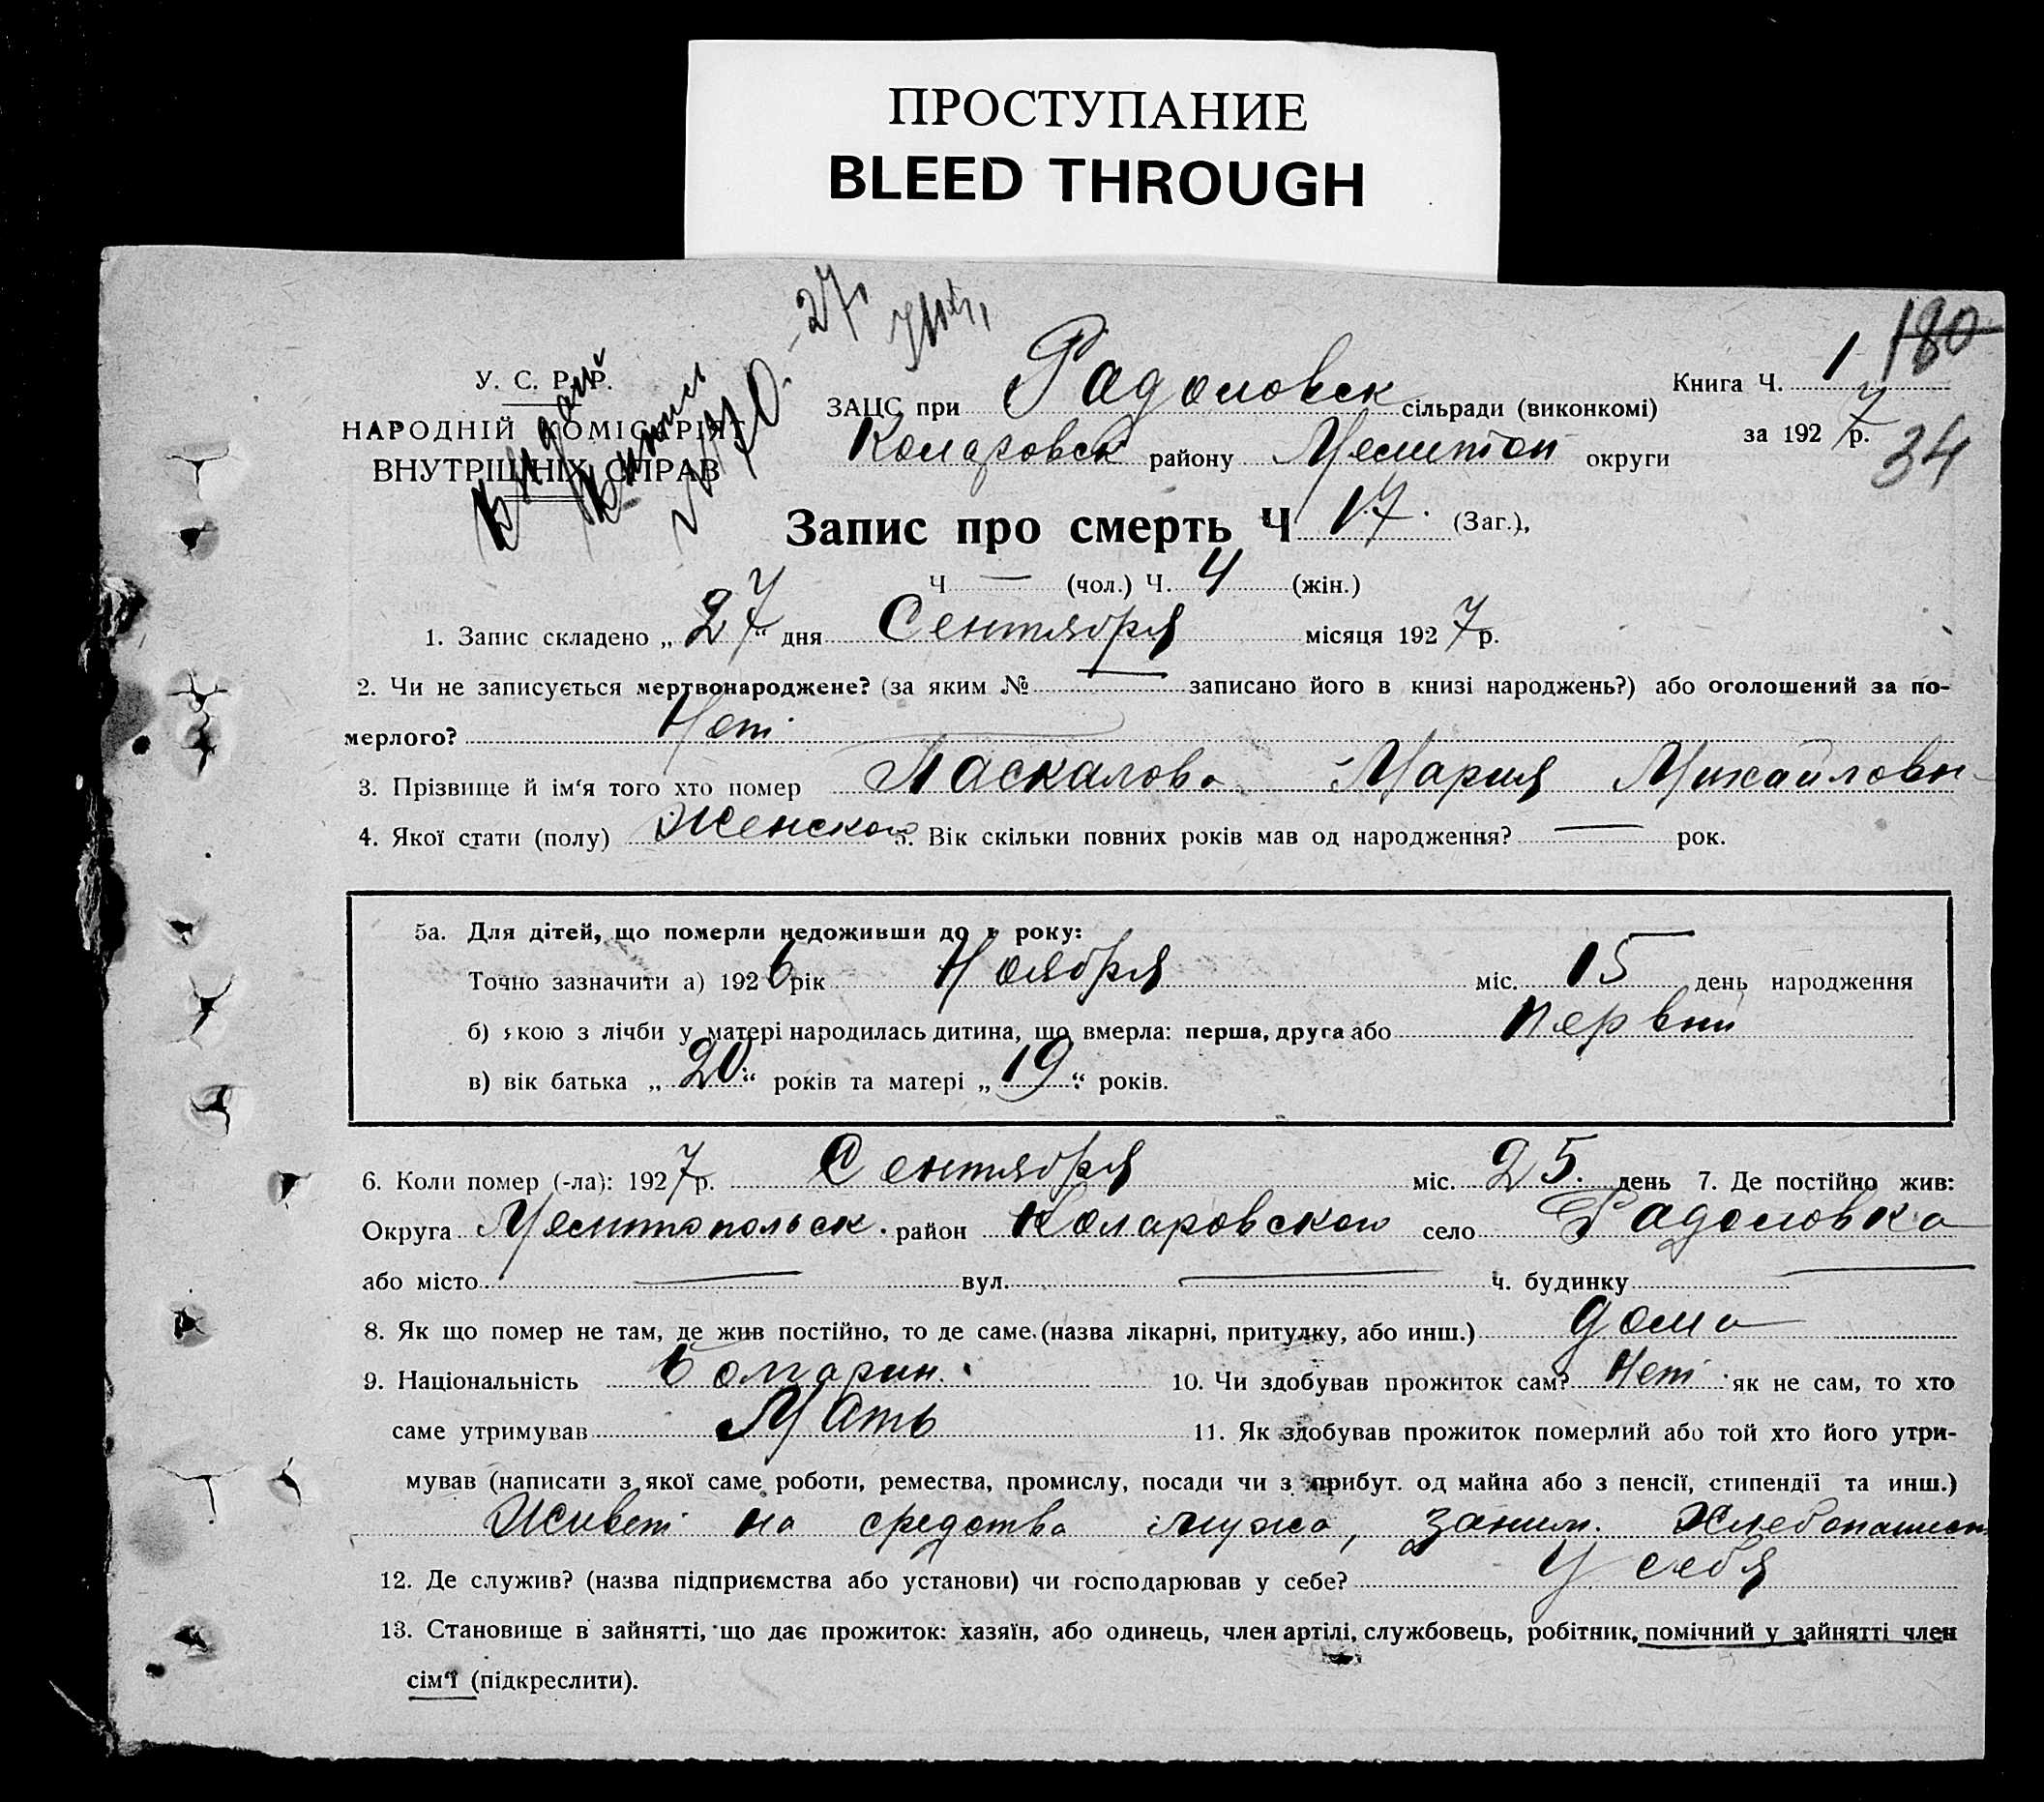 ПРОСТУПАНИЕ
BLEED THROUGH
27
180
У. С. Р. Р.
НАРОДНІЙ КОМІСАРІЯТ
ВНУТРІШНІХ СПРАВ
ЗАЦС при Радоловск сільради (виконкомі)
Книга Ч. 1
Коларовск району Мелитоп округи
за 1927 р.
34
Запис про смерть Ч 17. (Заг.),
Ч — (чол.) Ч. 4 (жін.)
1. Запис складено „27“ дня Сентября місяця 1927 р.
2. Чи не записується мертвонароджене? (за яким № — записано його в книзі народжень?) або оголошений за по-
мерлого? Нет
3. Прізвище й ім‘я того хто помер Паскалова Мария Михайловн
4. Якої стати (полу) Женского 5. Вік скільки повних років мав од народження? — рок.
5а. Для дітей, що померли недоживши до 1 року:
Точно зазначити а) 1926 рік Ноября міс. 15 день народження
б) якою з лічби у матері народилась дитина, що вмерла: перша, друга або первий
в) вік батька „20“ років та матері „19“ років.
6. Коли помер (-ла): 1927 р. Сентября міс. 25. день 7. Де постійно жив:
Округа Мелитопольск. район Коларовского село Радоловка
або місто — вул. — ч. будинку —
8. Як що помер не там, де жив постійно, то де саме (назва лікарні, притулку, або инш.) дома
9. Національність Болгарин. 10. Чи здобував прожиток сам? Нет як не сам, то хто
саме утримував Мать 11. Як здобував прожиток померлий або той хто його утри-
мував (написати з якої саме роботи, ремества, промислу, посади чи з прибут. од майна або з пенсії, стипендії та инш.)
Живет на средства мужа, заним. Хлебопашест
12. Де служив? (назва підприємства або установи) чи господарював у себе? У себя
13. Становище в зайнятті, що дає прожиток: хазяїн, або одинець, член артілі, службовець, робітник, помічний у зайнятті член
сім‘ї (підкреслити).